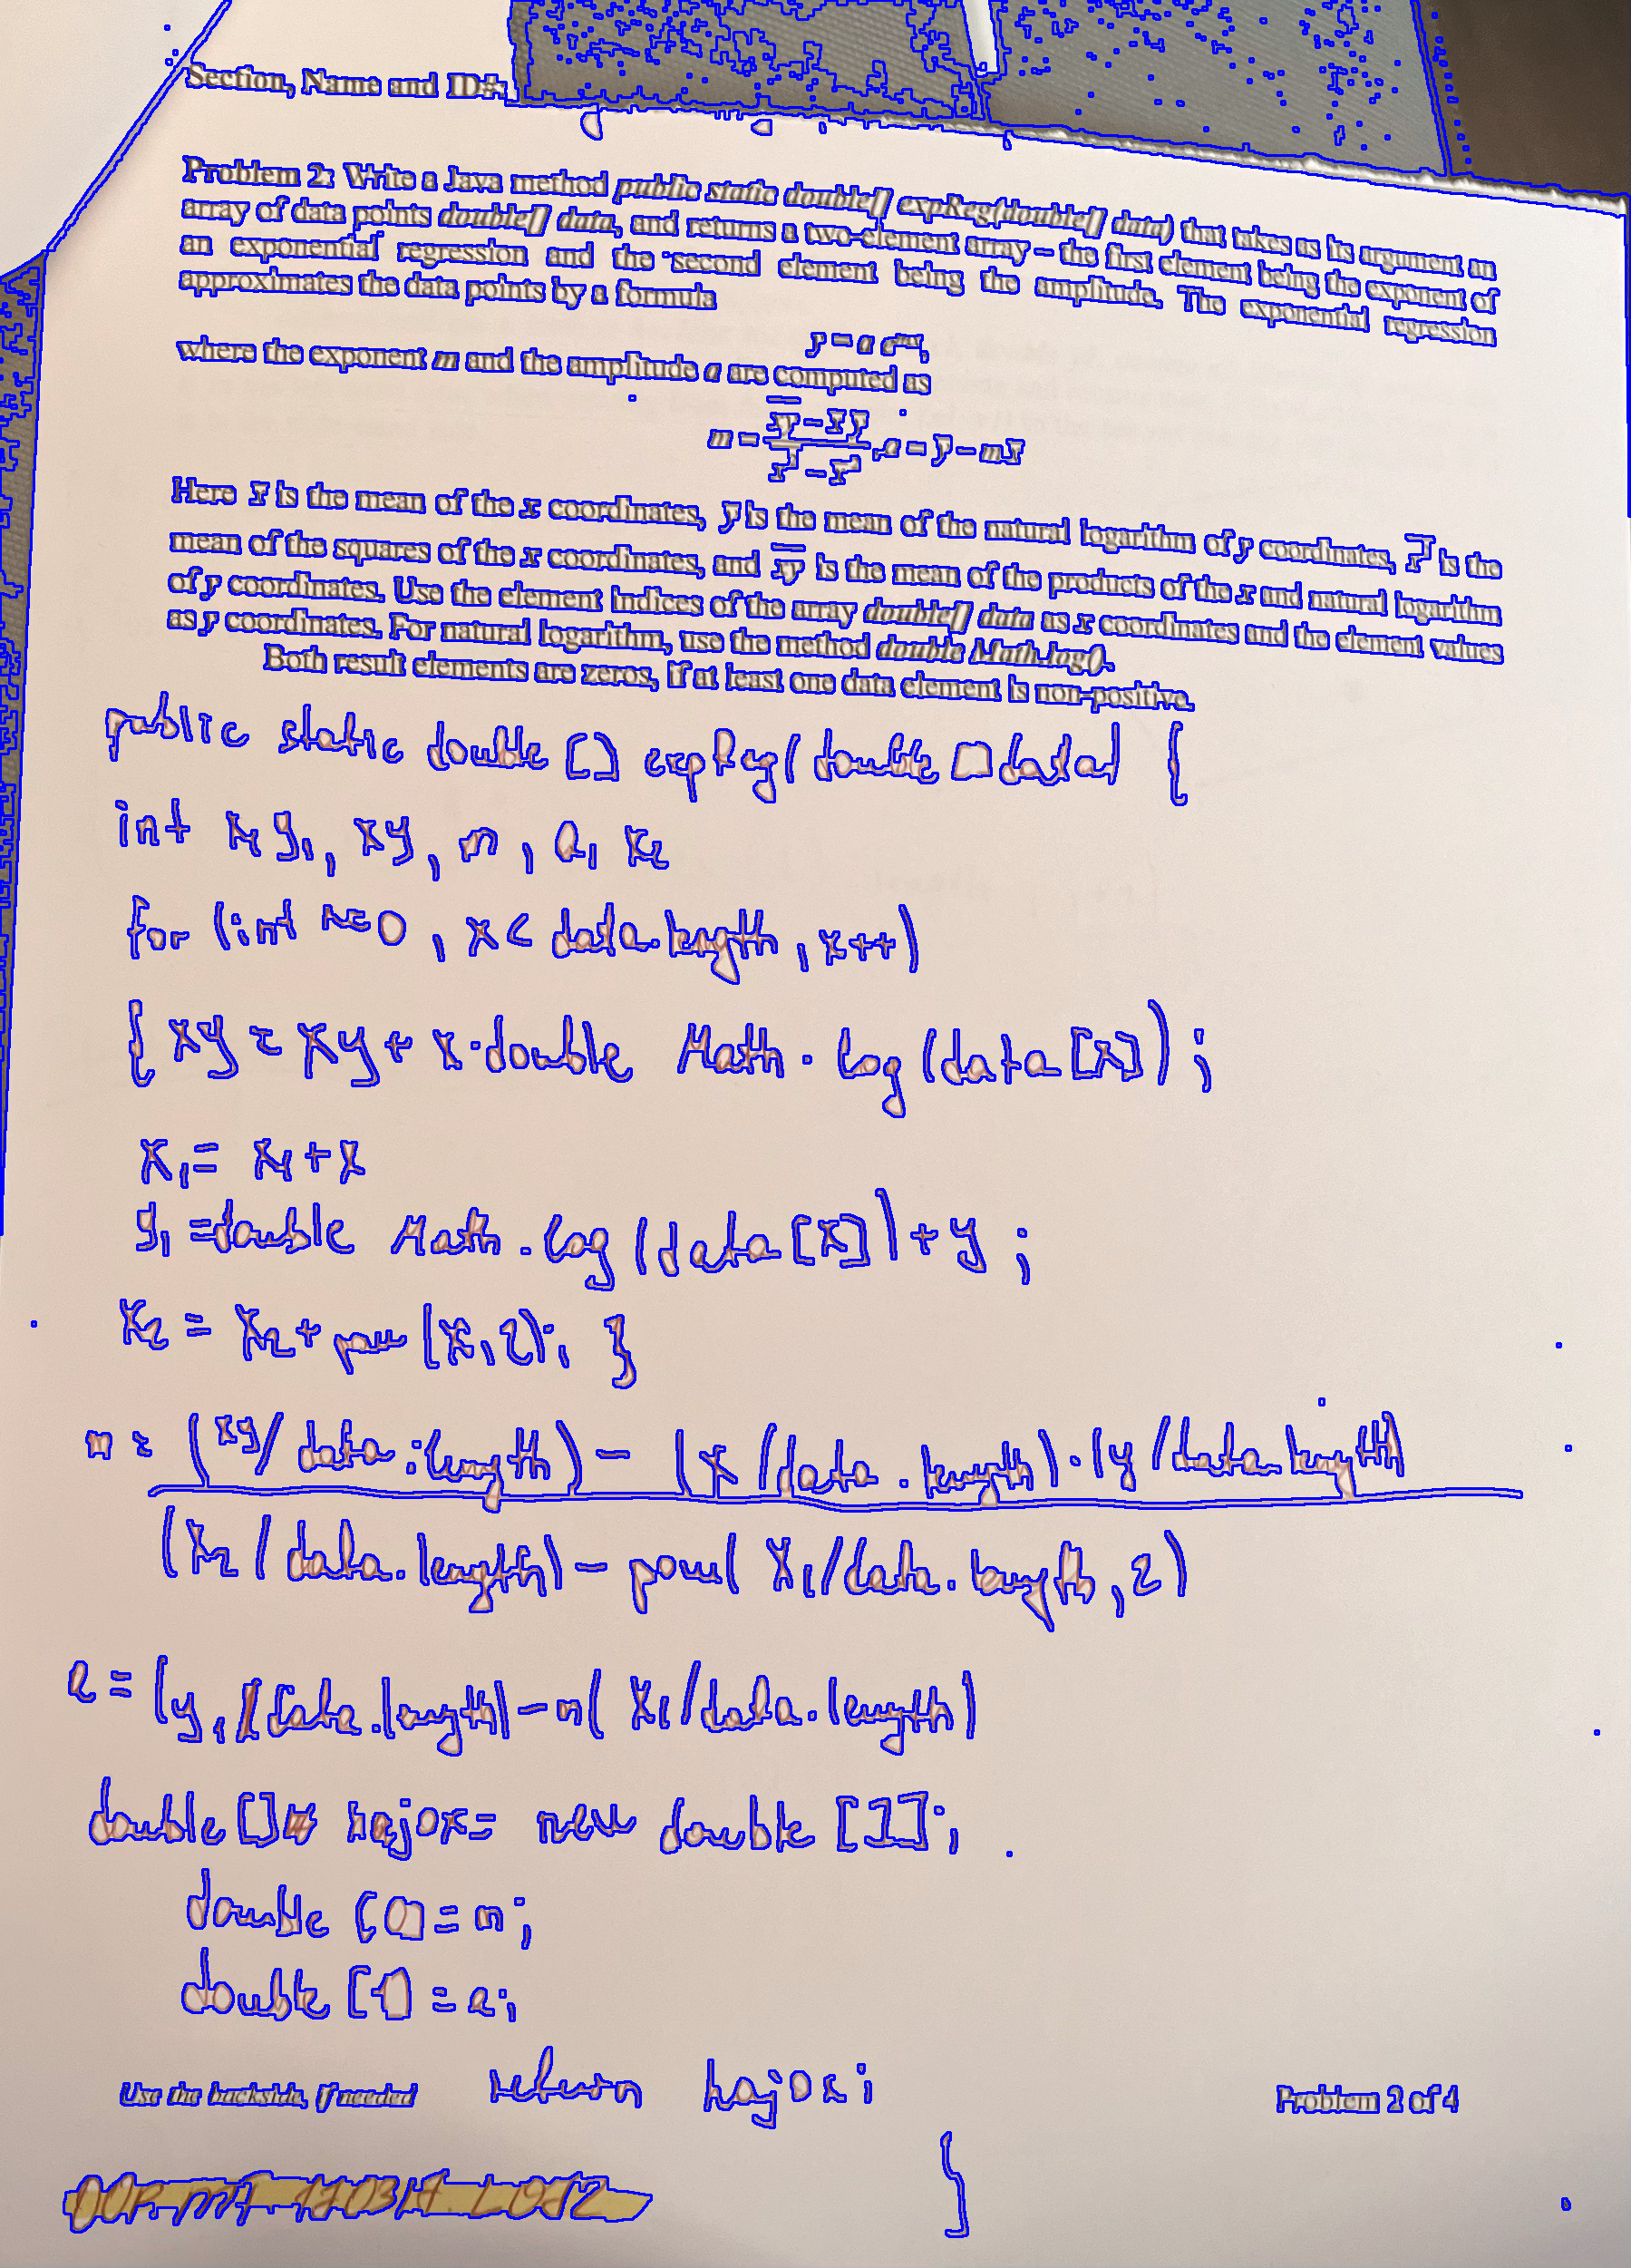 Section, Name and ID#:
Problem 2: Write a Java method public static double[] expReg(double[] data) that takes as its argument an
array of data points double[] data, and returns a two-element array – the first element being the exponent of
an exponential regression and the second element being the amplitude. The exponential regression
approximates the data points by a formula
y = a e^mx,
where the exponent m and the amplitude a are computed as
m = (x̅y̅ – x̅ y̅) / (x̅²̅ – x̅²), a = y̅ – m x̅
Here x̅ is the mean of the x coordinates, y̅ is the mean of the natural logarithm of y coordinates, x̅²̅ is the
mean of the squares of the x coordinates, and x̅y̅ is the mean of the products of the x and natural logarithm
of y coordinates. Use the element indices of the array double[] data as x coordinates and the element values
as y coordinates. For natural logarithm, use the method double Math.log().
Both result elements are zeros, if at least one data element is non-positive.
public static double [] expReg( double [] data) {
int x1 y1, xy, m, a, x2
for (int x=0, x < data.length, x++)
{ xy = xy + x·double Math.log(data[x]);
x1 = x1 + x
y1 = double Math.log(data[x]) + y ;
x2 = x2 + pow(x,2); }
m = (xy/ data.length) – (x /data.length)·(y /data.length)
(x2 / data.length) – pow( x1/data.length, 2)
a = (y1/data.length) – m( x1/data.length)
double [] = new double [1];
double [0] = m;
double [1] = a;
return
Use the backside, if needed
Problem 2 of 4
}